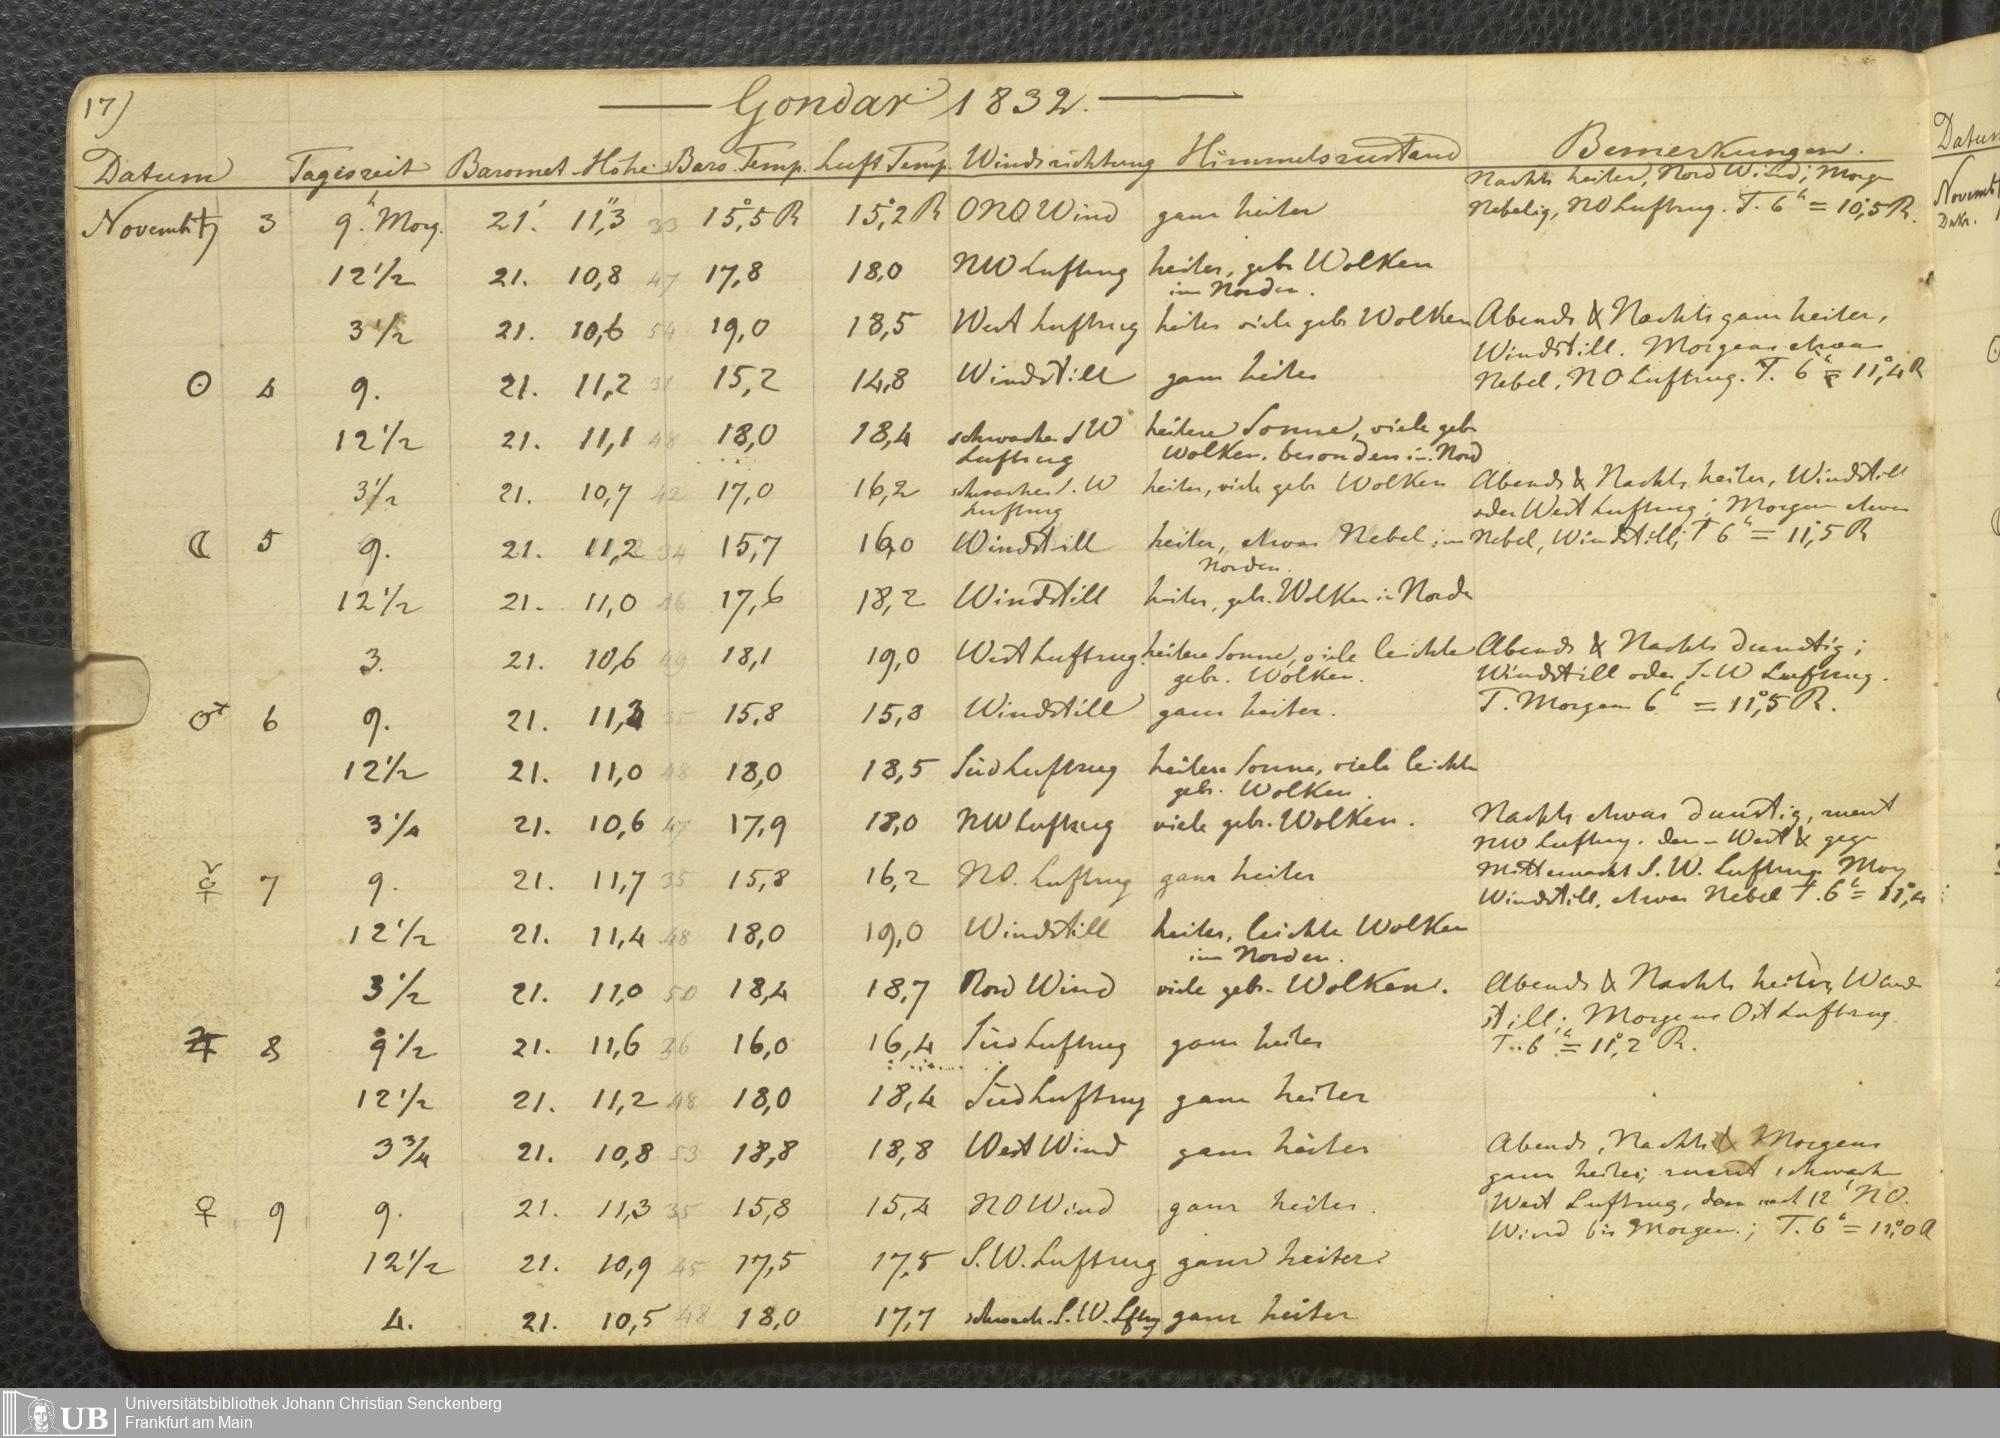 17)
Gondar 1832.
Datum Tageszeit Baromet. Höhe Baro. Temp. Luft Temp. Windsrichtung Himmelszustand Bemerkungen.
Novemb. ♄ 3 9.h Morg. 21.' 11,"3 33 15,°5 R 15,°2 R ONO Wind ganz heiter Nachts heiter, Nord Wind; Morgen
Nebelig, NO Luftzug. T. 6h = 10,°5 R.
12 1/2 21. 10,8 47 17,8 18,0 NW Luftzug heiter, gebr Wolken
im Norden.
3 1/2 21. 10,6 54 19,0 18,5 West Luftzug heiter viele gebr Wolken Abends & Nachts ganz heiter,
Windstill. Morgens etwas
☉ 4 9. 21. 11,2 31 15,2 14,8 Windstill ganz heiter Nebel, NO Luftzug. T. 6h = 11,°4 R
12 1/2 21. 11,1 48 18,0 18,4 schwacher SW heitere Sonne, viele gebr
Luftzug Wolken. besonders im Nord
3 1/2 21. 10,7 42 17,0 16,2 schwacher S. W heiter, viele gebr Wolken Abends & Nachts heiter, Windstill
Luftzug oder West Luftzug; Morgen etwas
☾ 5 9. 21. 11,2 34 15,7 16,0 Windstill heiter, etwas Nebel im Nebel, Windstill; T 6h = 11,°5 R
Norden.
12 1/2 21. 11,0 46 17,6 18,2 Windstill heiter, gebr. Wolken in Norden
3. 21. 10,6 49 18,1 19,0 West Luftzug. heitere Sonne, viele leichte Abends & Nachts dunstig;
gebr. Wolken. Windstill oder S.W Luftzug.
♂ 6 9. 21. 11,3 35 15,8 15,8 Windstill ganz heiter. T. Morgen 6h = 11,°5 R.
12 1/2 21. 11,0 48 18,0 18,5 Süd Luftzug heitere Sonne, viele leichte
gebr. Wolken.
3 1/4 21. 10,6 47 17,9 18,0 NW Luftzug viele gebr. Wolken. Nachts etwas dunstig, zuerst
NW Luftzug. dann West & gegen
☿ 7 9. 21. 11,7 35 15,8 16,2 NO. Luftzug ganz heiter Mitternacht S. W. Luftzug. Morg
Windstill, etwas Nebel T. 6h = 11,°4
12 1/2 21. 11,4 48 18,0 19,0 Windstill heiter, leichte Wolken
im Norden.
3 1/2 21. 11,0 50 18,4 18,7 Nord Wind viele gebr. Wolken. Abends & Nachts heiter, Wind
still; Morgens Ost Luftzug.
♃ 8 9 1/2 21. 11,6 36 16,0 16,4 Süd Luftzug ganz heiter T. 6h = 11,°2 R.
12 1/2 21. 11,2 48 18,0 18,4 Süd Luftzug ganz heiter
3 3/4 21. 10,8 53 18,8 18,8 West Wind ganz heiter Abends, Nachts & Morgens
ganz heiter; zuerst schwach
♀ 9 9. 21. 11,3 35 15,8 15,4 NO Wind ganz heiter. West Luftzug, dann nach 12h NO.
Wind bis Morgen.; T. 6h = 11,°0 R
12 1/2 21. 10,9 45 17,5 17,5 S. W. Luftzug ganz heiter.
4. 21. 10,5 48 18,0 17,7 schwach. S. W. Lftzg ganz heiter
Datum
Novemb
UB Universitätsbibliothek Johann Christian Senckenberg
Frankfurt am Main